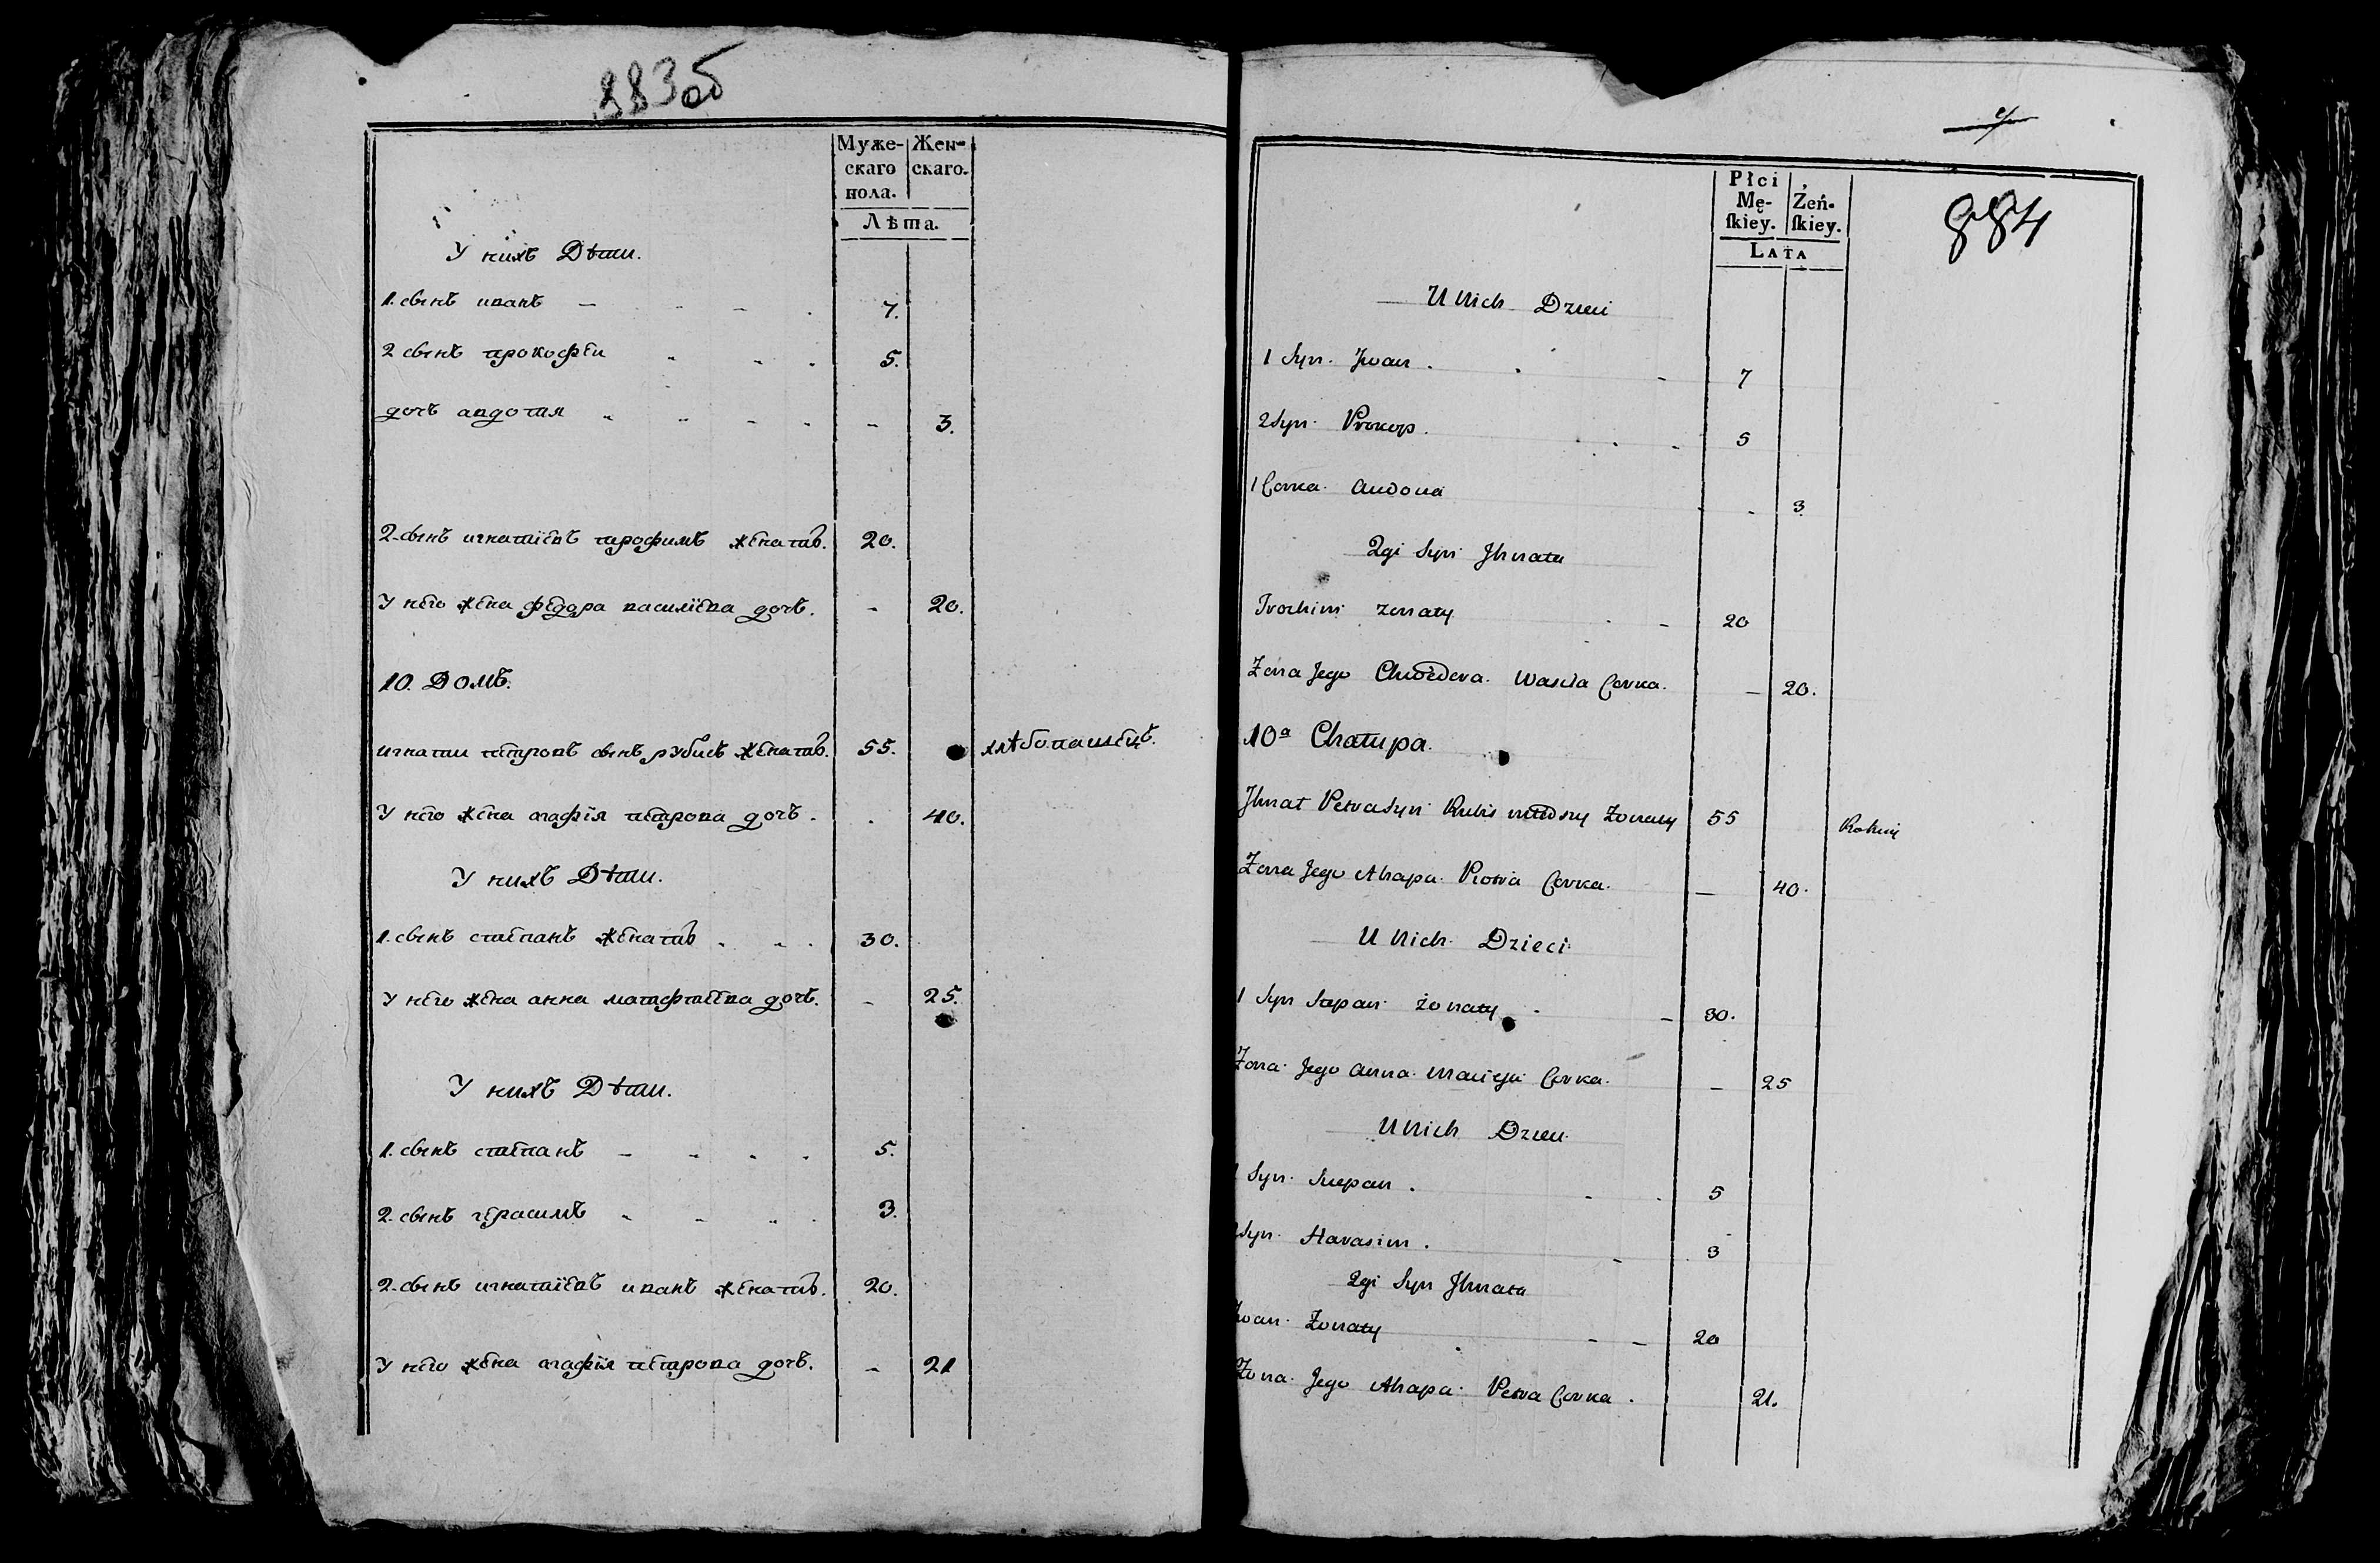 883об
Муже- Жен-
скаго скаго.
пола.
Лѣта.
У нихъ Дѣти.
1. сынъ иванъ - 7.
2 сынъ прокофѣи 5.
дочь авдотия - 3.
2-сынъ игнатіевъ трофимъ женатъ. 20.
У него жена федора василіева дочь. - 20.
10. Домъ.
игнатии петровъ сынъ рубисъ женатъ. 55. хлѣбопашецъ.
У него жена агафія петрова дочь. 40.
У нихъ Дѣти.
1. сынъ степанъ женатъ 30.
У него жена анна матфѣева дочь. - 25.
У нихъ Дѣти.
1. сынъ степанъ - 5.
2. сынъ герасимъ 3.
2-сынъ игнатіевъ иванъ женатъ. 20.
У него жена агафія петрова дочь. - 21
Płci
Mę- Żeń-
ſkiey. ſkiey.
LATA
884
U Nich Dzieci
1 Syn Jwan . 7
2 Syn Prokop . 5
1 Corka Audocia - 3
2gi Syn Jhnata
Trochim zonaty 20
Zona Jego Chwedora Wasila Corka. - 20.
10a Chałupa.
Jhnat Petra Syn Rubis młodszy Zonaty 55 Rolniy
Zona Jego Ahapa Piotra Corka. - 40.
U Nich Dzieci
1 Syn Stepan żonaty - 30.
Zona Jego Anna Macieja Corka. - 25
U Nich Dzieci
1 Syn Stepan . 5
2 Syn Harasim . 3
2gi Syn Jhnata
Jwan Zonaty - 20
Zona Jego Ahapa Petra Corka . 21.